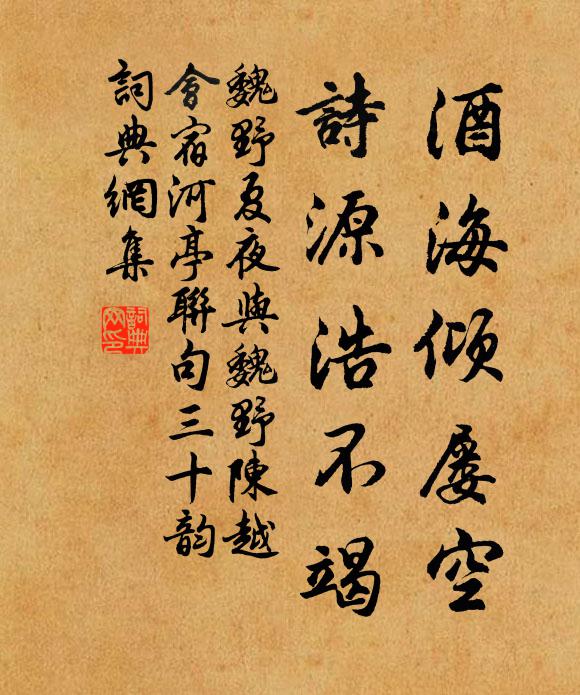 酒海傾屢空
詩源浩不竭
魏野夏夜與魏野陳越
會宿河亭聯句三十韵
詞典網集
詞典
网印